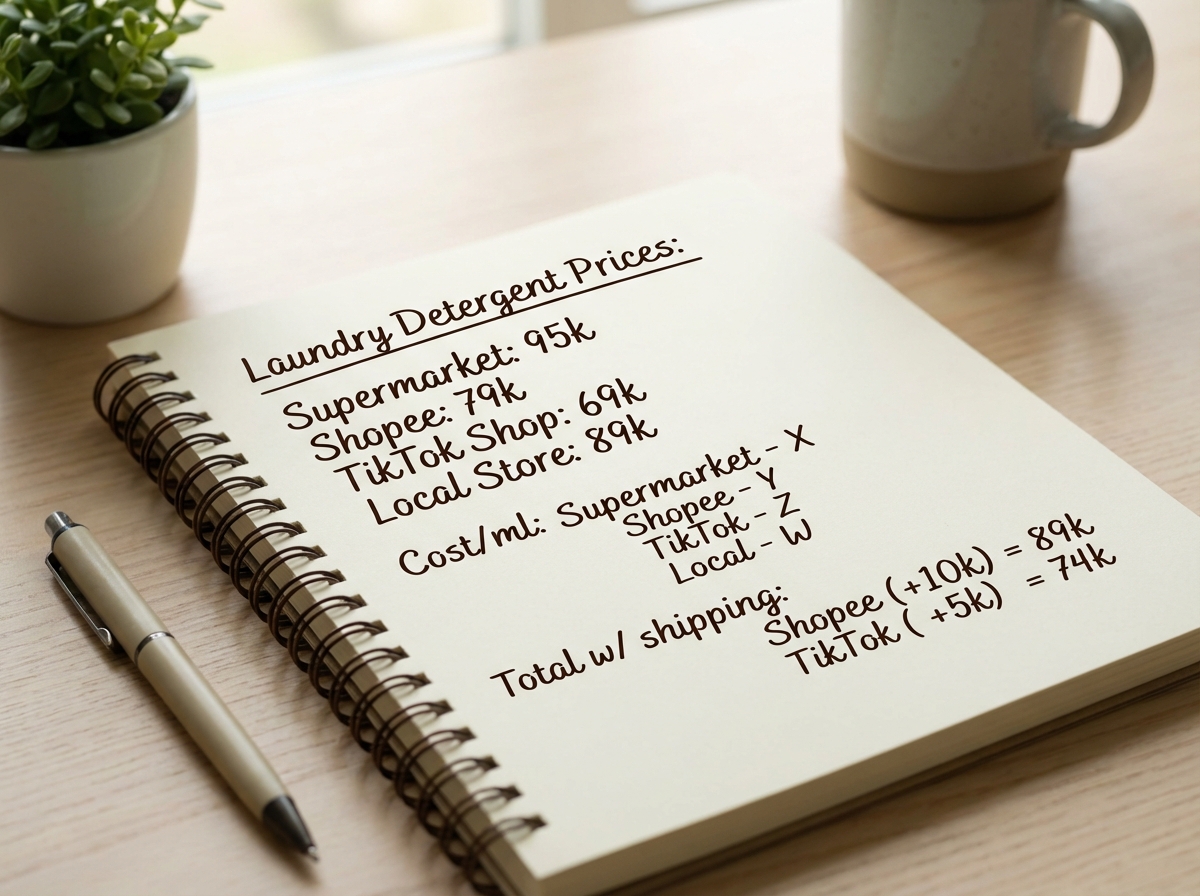 Laundry Detergent Prices:
Supermarket: 95k
Shopee: 79k
TikTok Shop: 69k
Local Store: 89k
Cost/ml: Supermarket - X
Shopee - Y
TikTok - Z
Local - W
Total w/ shipping:
Shopee (+10k) = 89k
TikTok ( +5k) = 74k